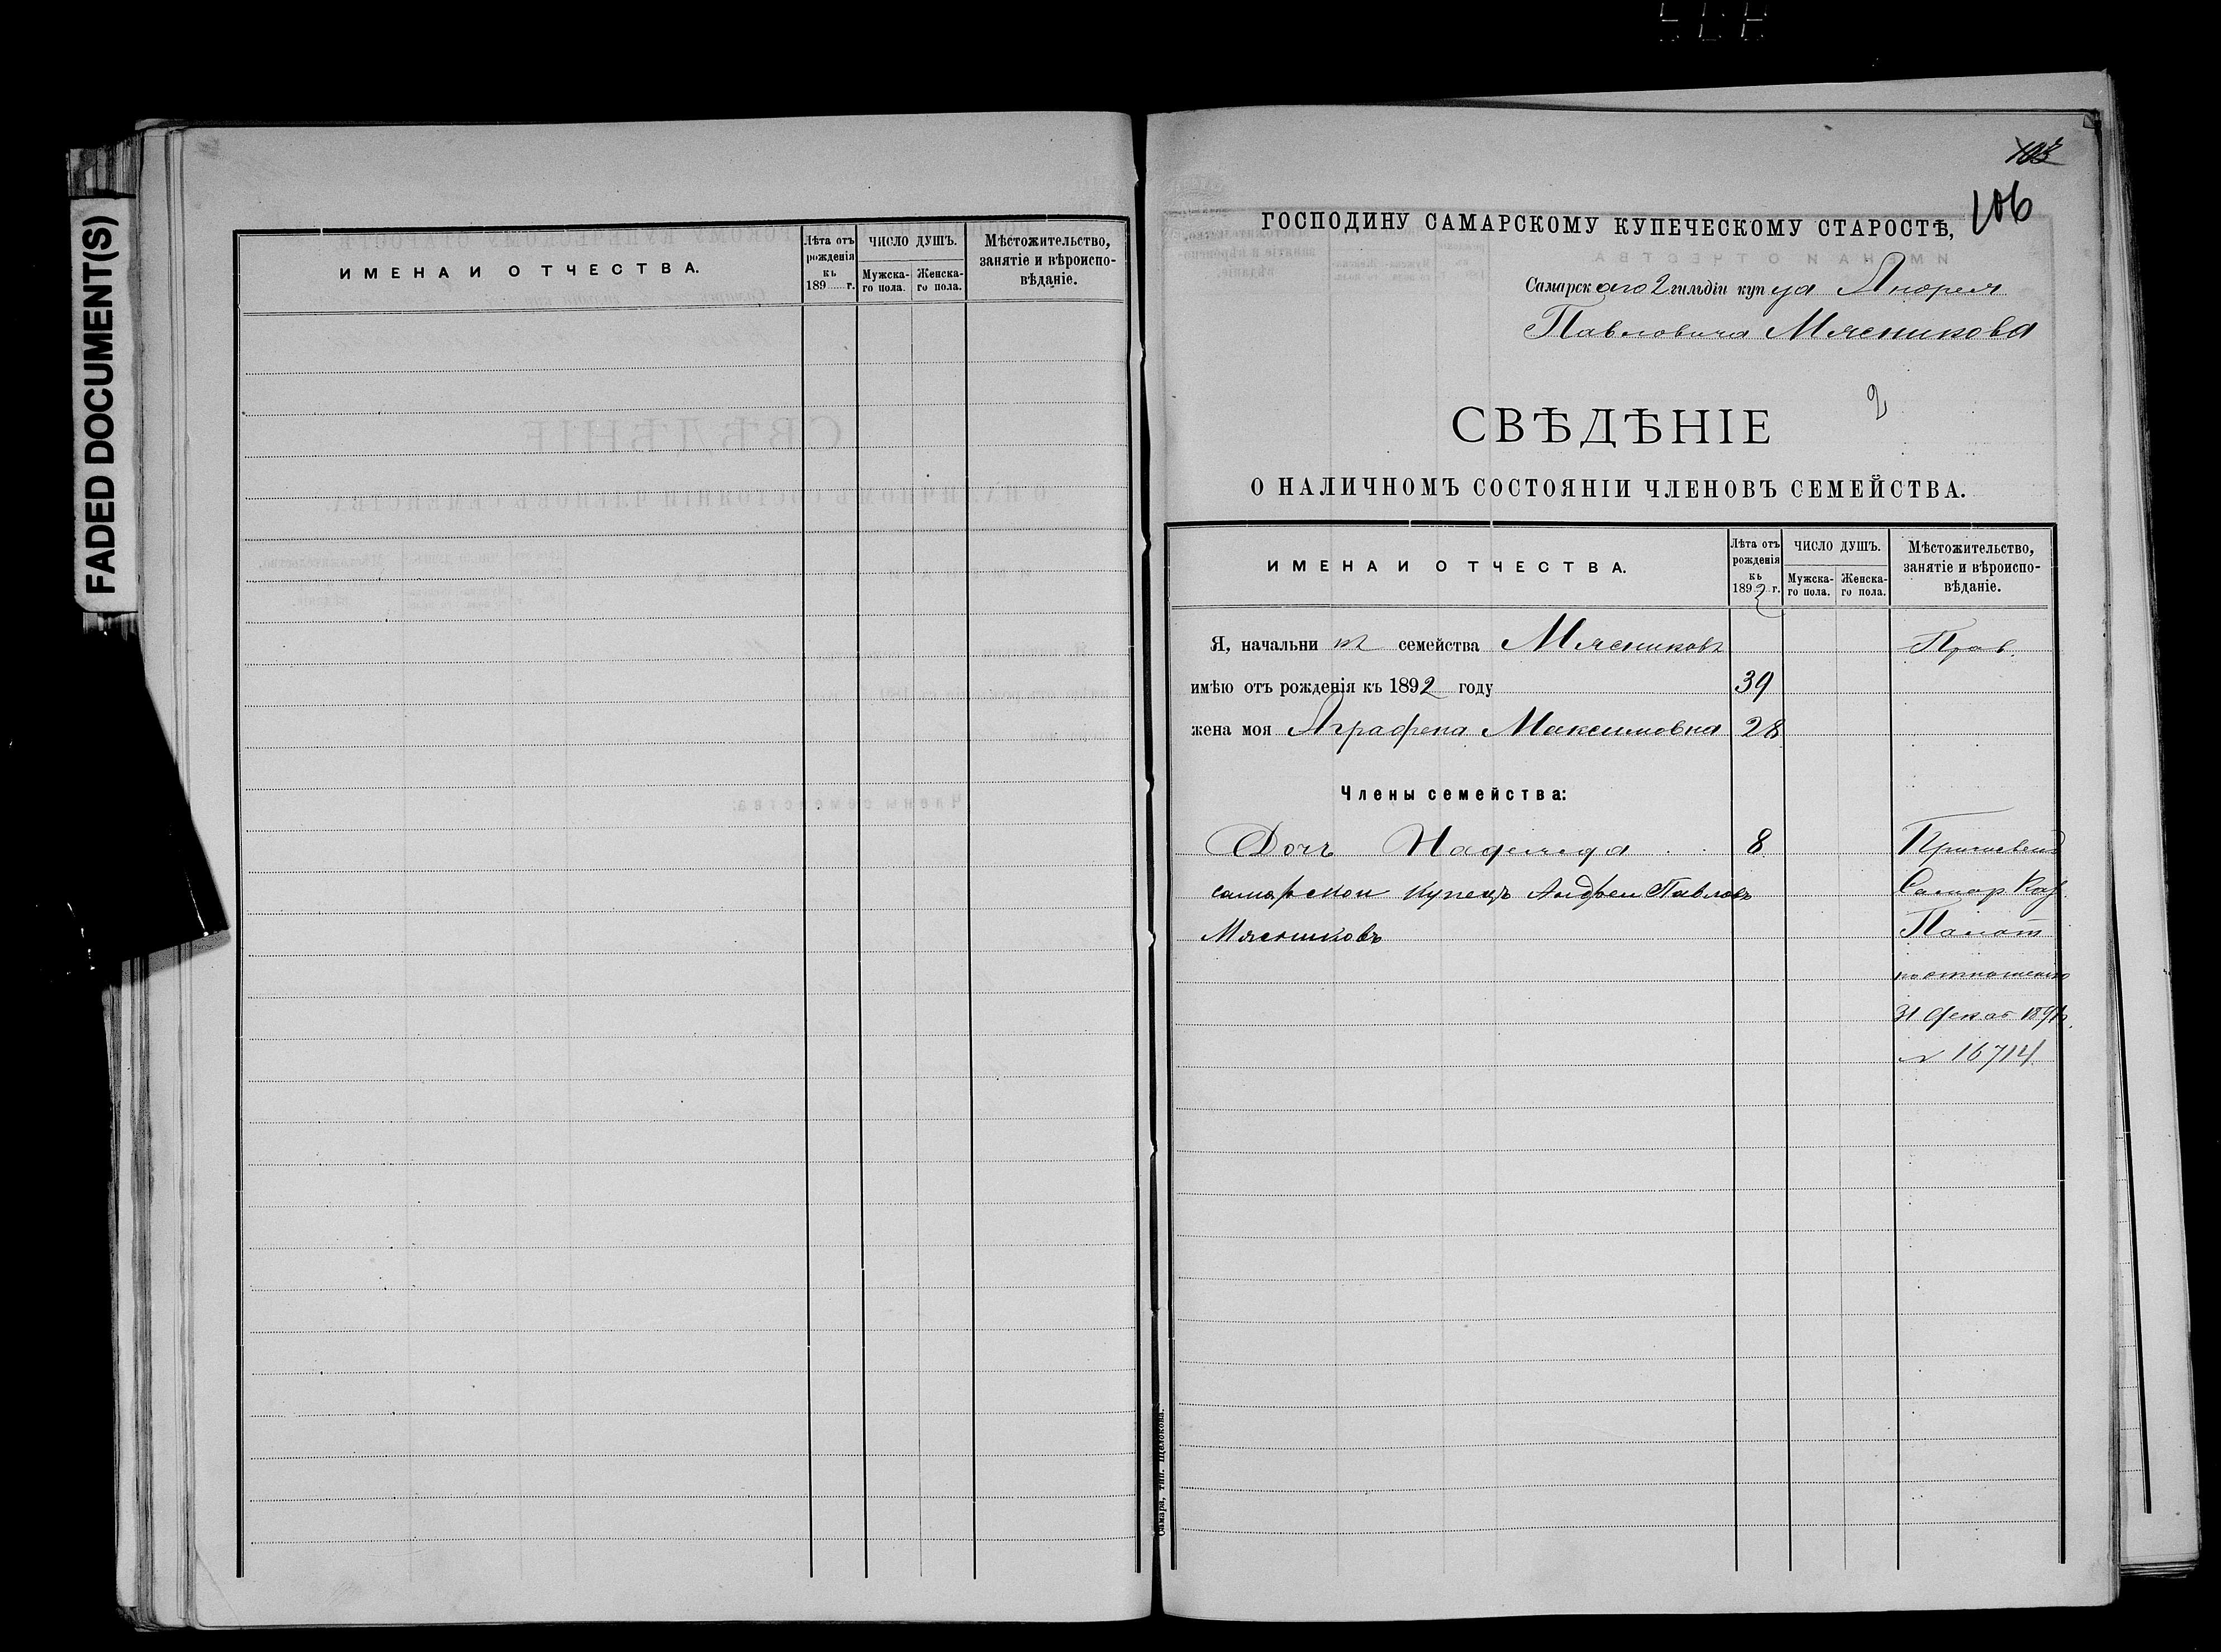 FADED DOCUMENT(S)
ИМЕНА И ОТЧЕСТВА.
Лѣта отъ рожденія къ 189 г.
ЧИСЛО ДУШЪ.
Мужска-го пола.
Женска-го пола.
Мѣстожительство, занятіе и вѣроиспо-вѣданіе.
103
106
ГОСПОДИНУ САМАРСКОМУ КУПЕЧЕСКОМУ СТАРОСТѢ,
Самарскаго 2 гильдіи купца Андрея
Павловича Мясникова
2
СВѢДѢНІЕ
О НАЛИЧНОМЪ СОСТОЯНІИ ЧЛЕНОВЪ СЕМЕЙСТВА.
ИМЕНА И ОТЧЕСТВА.
Лѣта отъ рожденія къ 1892 г.
ЧИСЛО ДУШЪ.
Мужска-го пола.
Женска-го пола.
Мѣстожительство, занятіе и вѣроиспо-вѣданіе.
Я, начальникъ семейства Мясниковъ Прав.
имѣю отъ рожденія къ 1892 году 39
жена моя Аграфена Максимовна 28
Члены семейства:
Дочь Надежда 8
самарскои Купецъ Андреи Павловъ Самар Каз.
Мясниковъ Палат
31 Декаб 1891
№ 16714
Самара, тип. Щелокова.